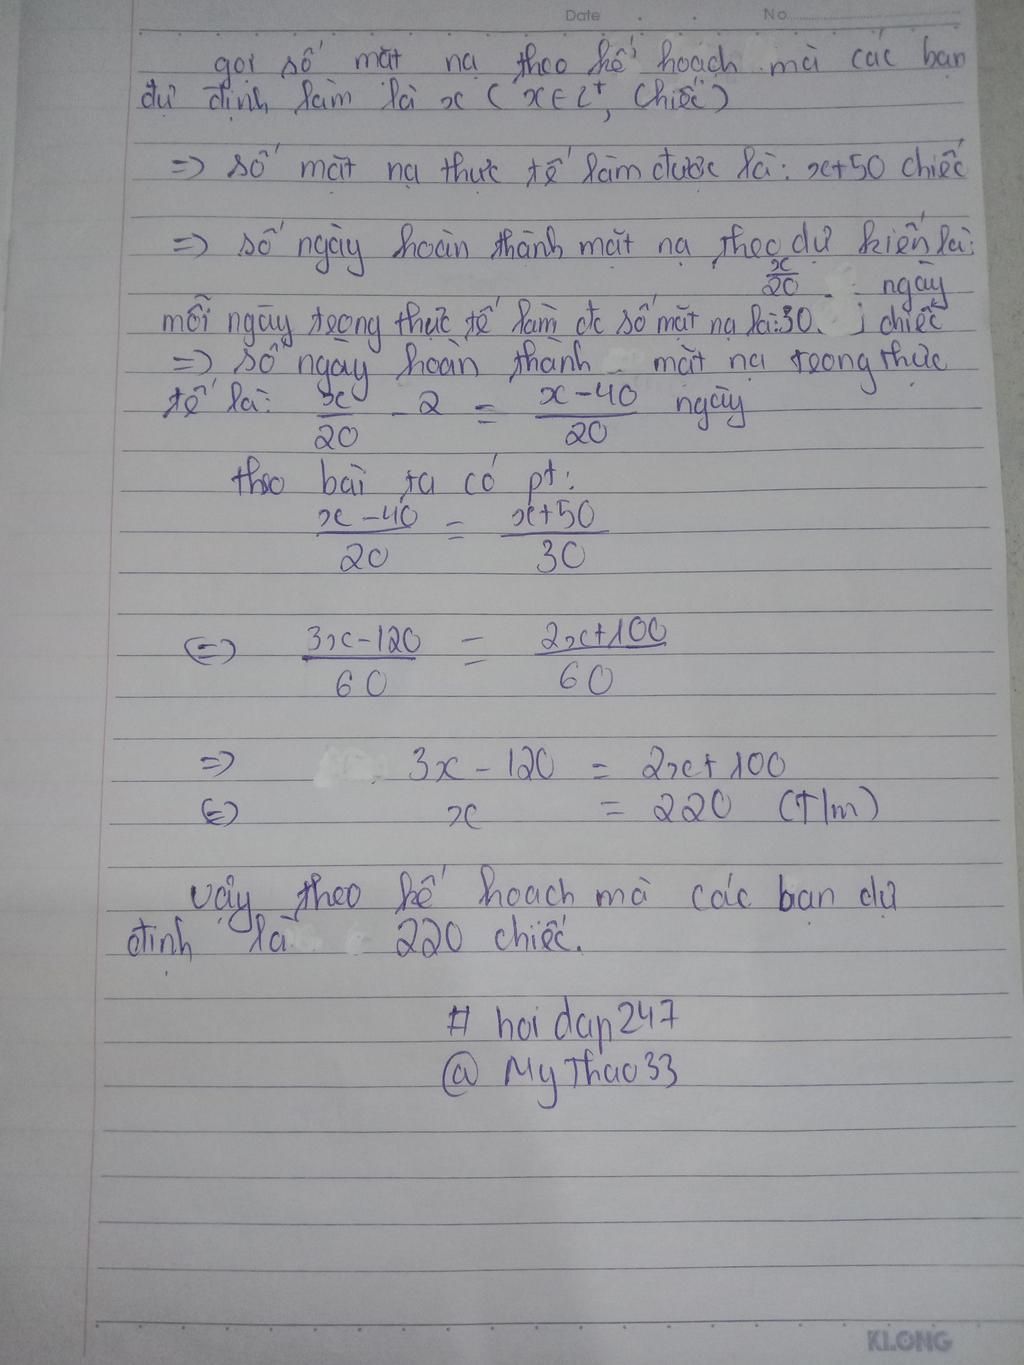 Date . . No.
gọi số mặt nạ theo kế hoạch mà các bạn
dự định làm là x ( x ∈ Z⁺, chiếc )
=> số mặt nạ thực tế làm được là: x+50 chiếc
=> số ngày hoàn thành mặt nạ theo dự kiến là:
x/20 ngày
mỗi ngày trong thực tế làm đc số mặt nạ là: 30 chiếc
=> số ngày hoàn thành mặt nạ trong thực
tế là: x/20 - 2 = x-40/20 ngày
theo bài ta có pt:
x-40/20 = x+50/30
<=> 3x-120/60 = 2x+100/60
=> 3x - 120 = 2x+100
<=> x = 220 (T/m)
vậy theo kế hoạch mà các bạn dự
định là 220 chiếc.
# hoidap247
@ MyThao33
KLONG